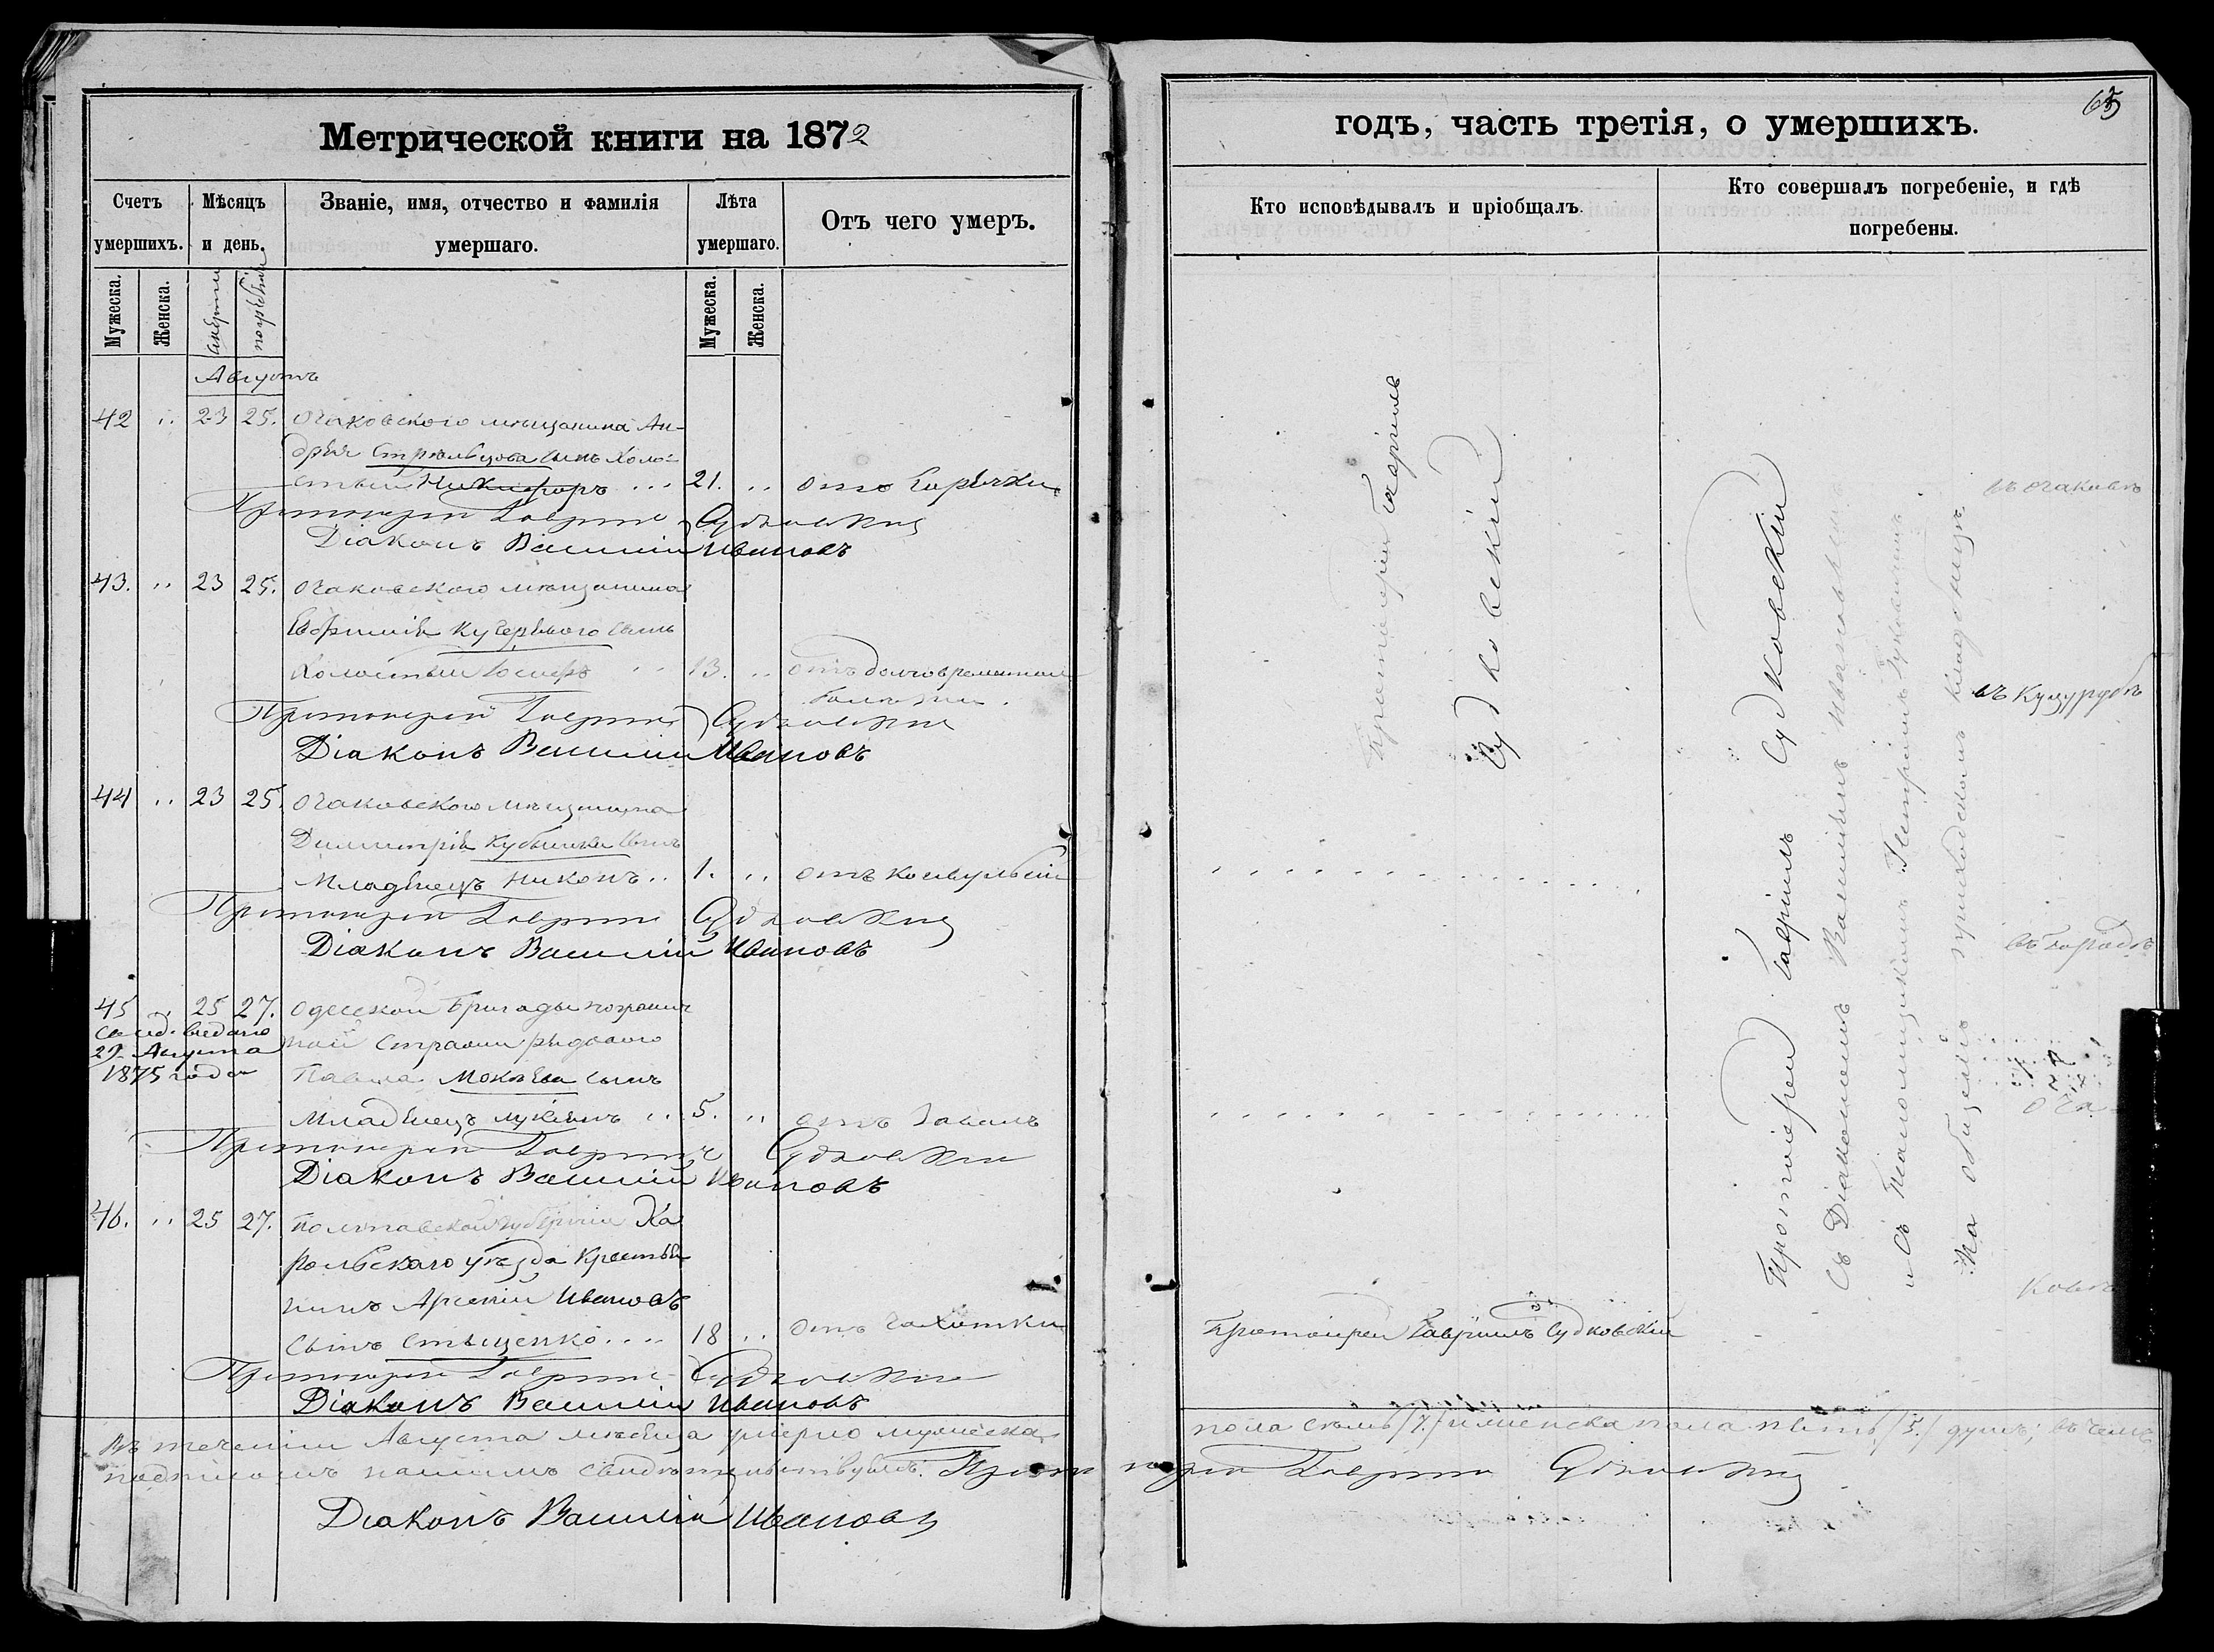 Метрической книги на 1872
Счетъ умершихъ.
Мѣсяцъ и день.
Званіе, имя, отчество и фамилія умершаго.
Лѣта умершаго.
Отъ чего умеръ.
Мужеска.
Женска.
смерти
погребенія
Мужеска.
Женска.
Августъ
42 .. 23 25. Очаковского мѣщанина Ан-
дрея Стрельцова сынъ холо-
стый Никифоръ ... 21. .. отъ горячки
Протоіерей Гавріилъ Судковскій
Діаконъ Василій Ивановъ
43. .. 23 25. Очаковского мѣщанина
Евфимія Кучерявого сынъ
холостый Іосифъ .. 13. .. отъ долговременной
болезни.
Протоіерей Гавріилъ Судковскій
Діаконъ Василій Ивановъ
44 .. 23 25. Очаковского мѣщанина
Димитрія Кубышки сынъ
Младенецъ Никонъ .. 1. .. отъ конвульсіи
Протоіерей Гавріилъ Судковскій
Діаконъ Василій Ивановъ
45 .. 25 27. Одесской бригады погранич
ной стражи рядового
Павла Мокѣева сынъ
Младенецъ Лукіанъ .. 5. ..
свид. выдано
29 Августа
1875 года
Протоіерей Гавріилъ Судковскій
Діаконъ Василій Ивановъ
46. .. 25 27. Полтавской губерніи Хо
рольскаго уѣзда крестья
нинъ Арсеній Ивановъ
сынъ Стыценко .... 18 .. отъ чахотки
Протоіерей Гавріилъ Судковскій
Діаконъ Василій Ивановъ
Въ теченіи Августа мѣсяца умерло мужеска
подписомъ нашимъ свидѣтельствуемъ. Прото
Діаконъ Василій Ивановъ
65
годъ, часть третія, о умершихъ.
Кто исповѣдывалъ и пріобщалъ.
Кто совершалъ погребеніе, и гдѣ погребены.
Протоіерей Гавріилъ
Судковскій
Протоіерей Гавріилъ Судковскій
Съ Діакономъ Василіемъ Ивановымъ
и съ Паломщикомъ Петромъ
На общемъ приходскомъ кладбищѣ.
въ Очаковѣ
въ Куцурубѣ
въ городѣ
Оча-
ковѣ
Протоіерей Гавріилъ Судковскій
пола семь /7./ и женска пола пять /5./ душъ; въ чемъ
іерей Гавріилъ Судковскій